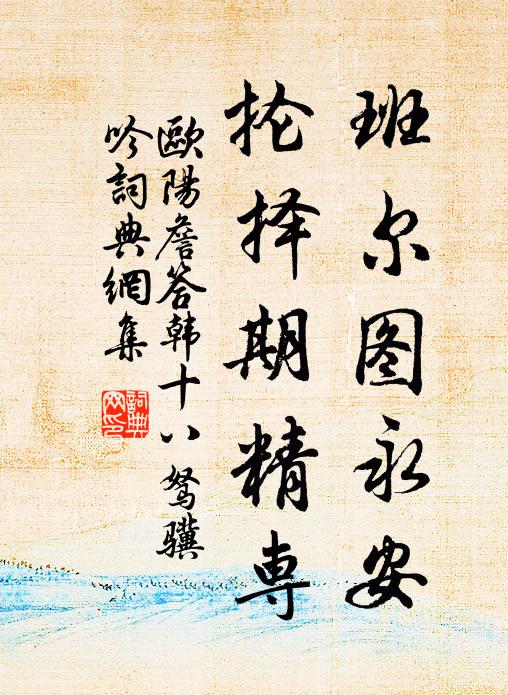 班尔图永安
抡择期精専
歐陽詹答韩十八驽骥
吟詞典網集
詞典
网印